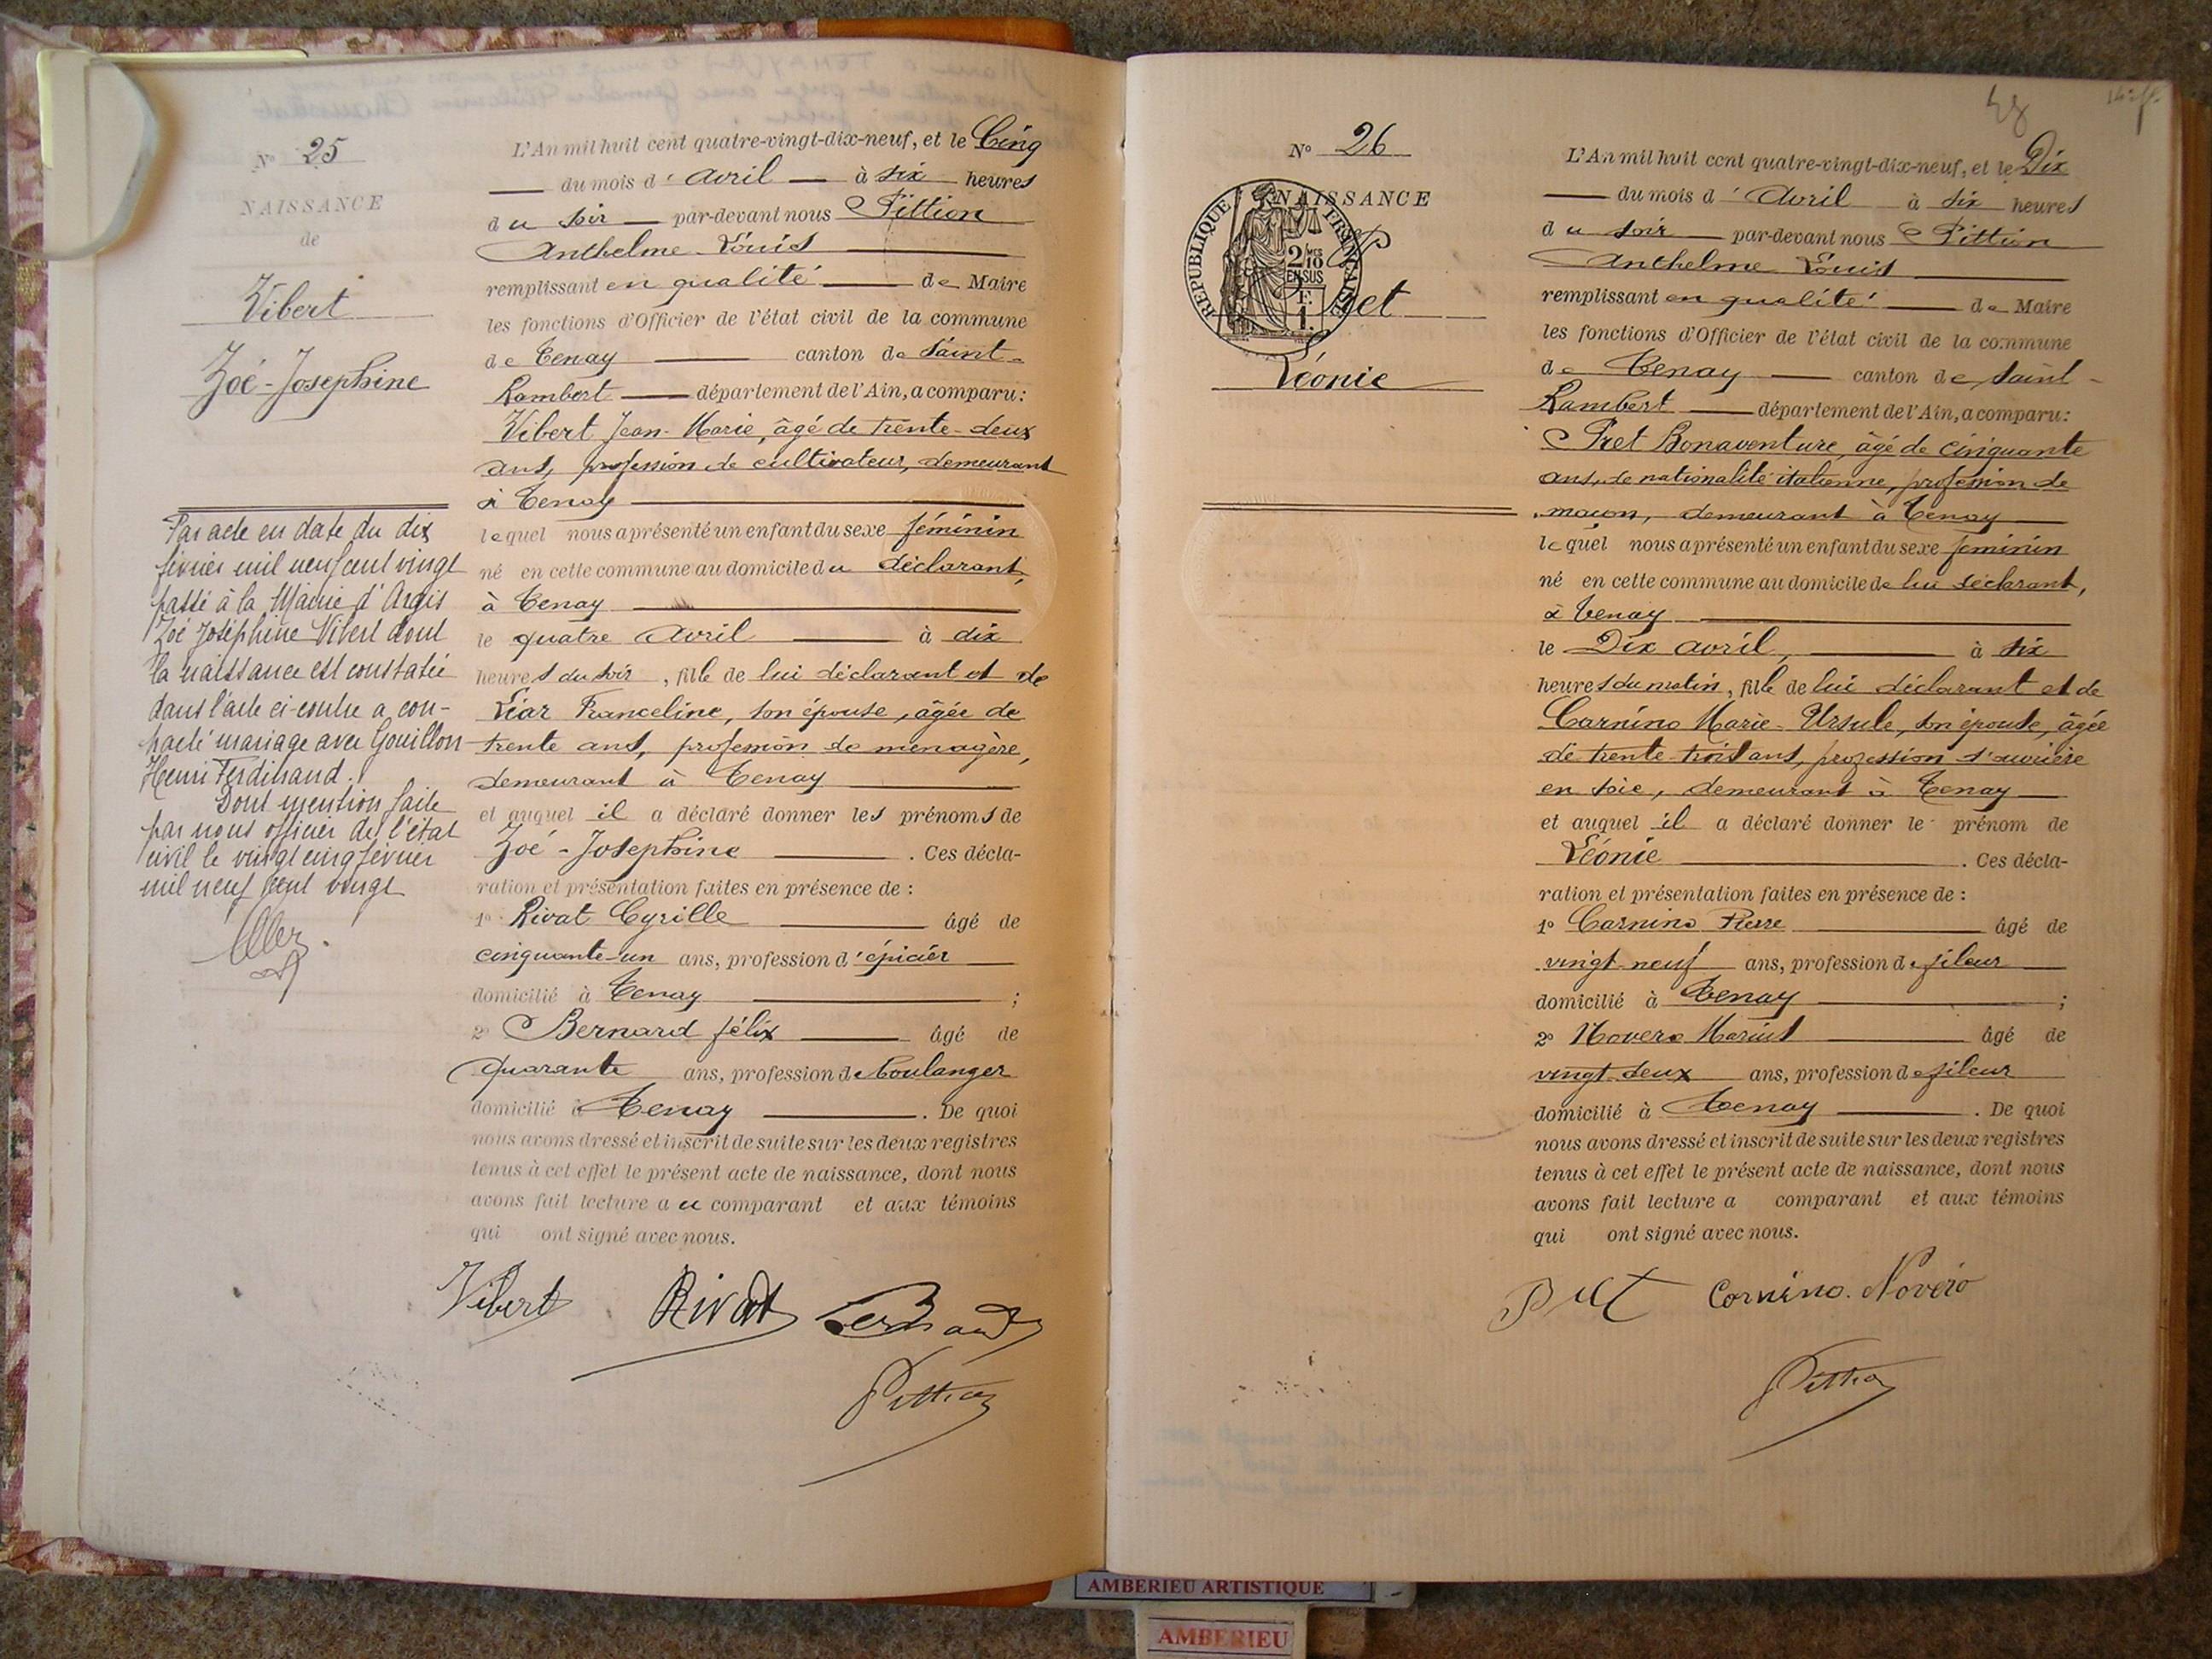 N° 25
NAISSANCE
de
Vibert
Zoé-Josephine
Par acte en date du dix
février mil neuf cent vingt
passé à la Mairie d'Argis
Zoé Joséphine Vibert dont
la naissance est constatée
dans l'acte ci-contre a con-
tracté mariage avec Gouillon
Henri Ferdinand.
Dont mention faite
par nous officier de l'état
civil le vingt cinq février
mil neuf cent vingt
L'An mil huit cent quatre-vingt-dix-neuf, et le Cinq
du mois d'avril à six heures
du soir par-devant nous Pittion
Anthelme Louis
remplissant en qualité de Maire
les fonctions d'Officier de l'état civil de la commune
de Tenay canton de Saint-
Rambert département de l'Ain, a comparu:
Vibert Jean-Marie, âgé de trente-deux
ans, profession de cultivateur, demeurant
à Tenay
lequel nous a présenté un enfant du sexe féminin
né en cette commune au domicile du déclarant,
à Tenay
le quatre avril à dix
heures du soir, fille de lui déclarant et de
Léar Franceline, son épouse, âgée de
trente ans, profession de ménagère,
demeurant à Tenay
et auquel il a déclaré donner les prénoms de
Zoé-Josephine. Ces décla-
ration et présentation faites en présence de :
1° Rivat Cyrille âgé de
cinquante-un ans, profession d'épicier
domicilié à Tenay ;
2° Bernard félix âgé de
quarante ans, profession de boulanger
domicilié à Tenay. De quoi
nous avons dressé et inscrit de suite sur les deux registres
tenus à cet effet le présent acte de naissance, dont nous
avons fait lecture au comparant et aux témoins
qui ont signé avec nous.
Vibert Rivat Bernard
Pittion
48
N° 26
NAISSANCE
REPUBLIQUE FRANÇAISE
2/10 EN SUS
1 F.
Pret
Léonie
L'An mil huit cent quatre-vingt-dix-neuf, et le Dix
du mois d'avril à six heures
du soir par-devant nous Pittion
Anthelme Louis
remplissant en qualité de Maire
les fonctions d'Officier de l'état civil de la commune
de Tenay canton de Saint-
Rambert département de l'Ain, a comparu:
Pret Bonaventure, âgé de cinquante
ans, de nationalité italienne, profession de
maçon, demeurant à Tenay
lequel nous a présenté un enfant du sexe feminin
né en cette commune au domicile de lui déclarant,
à Tenay
le Dix avril, à six
heures du matin, fille de lui déclarant et de
Carnino Marie-Ursule, son épouse, âgée
de trente-trois ans, profession d'ouvrière
en soie, demeurant à Tenay
et auquel il a déclaré donner le prénom de
Léonie. Ces décla-
ration et présentation faites en présence de :
1° Carnino Pierre âgé de
vingt-neuf ans, profession de fileur
domicilié à Tenay ;
2° Novero Marius âgé de
vingt-deux ans, profession de fileur
domicilié à Tenay. De quoi
nous avons dressé et inscrit de suite sur les deux registres
tenus à cet effet le présent acte de naissance, dont nous
avons fait lecture a comparant et aux témoins
qui ont signé avec nous.
Pret Cornino. Novero
Pittion
AMBERIEU ARTISTIQUE
AMBERIEU